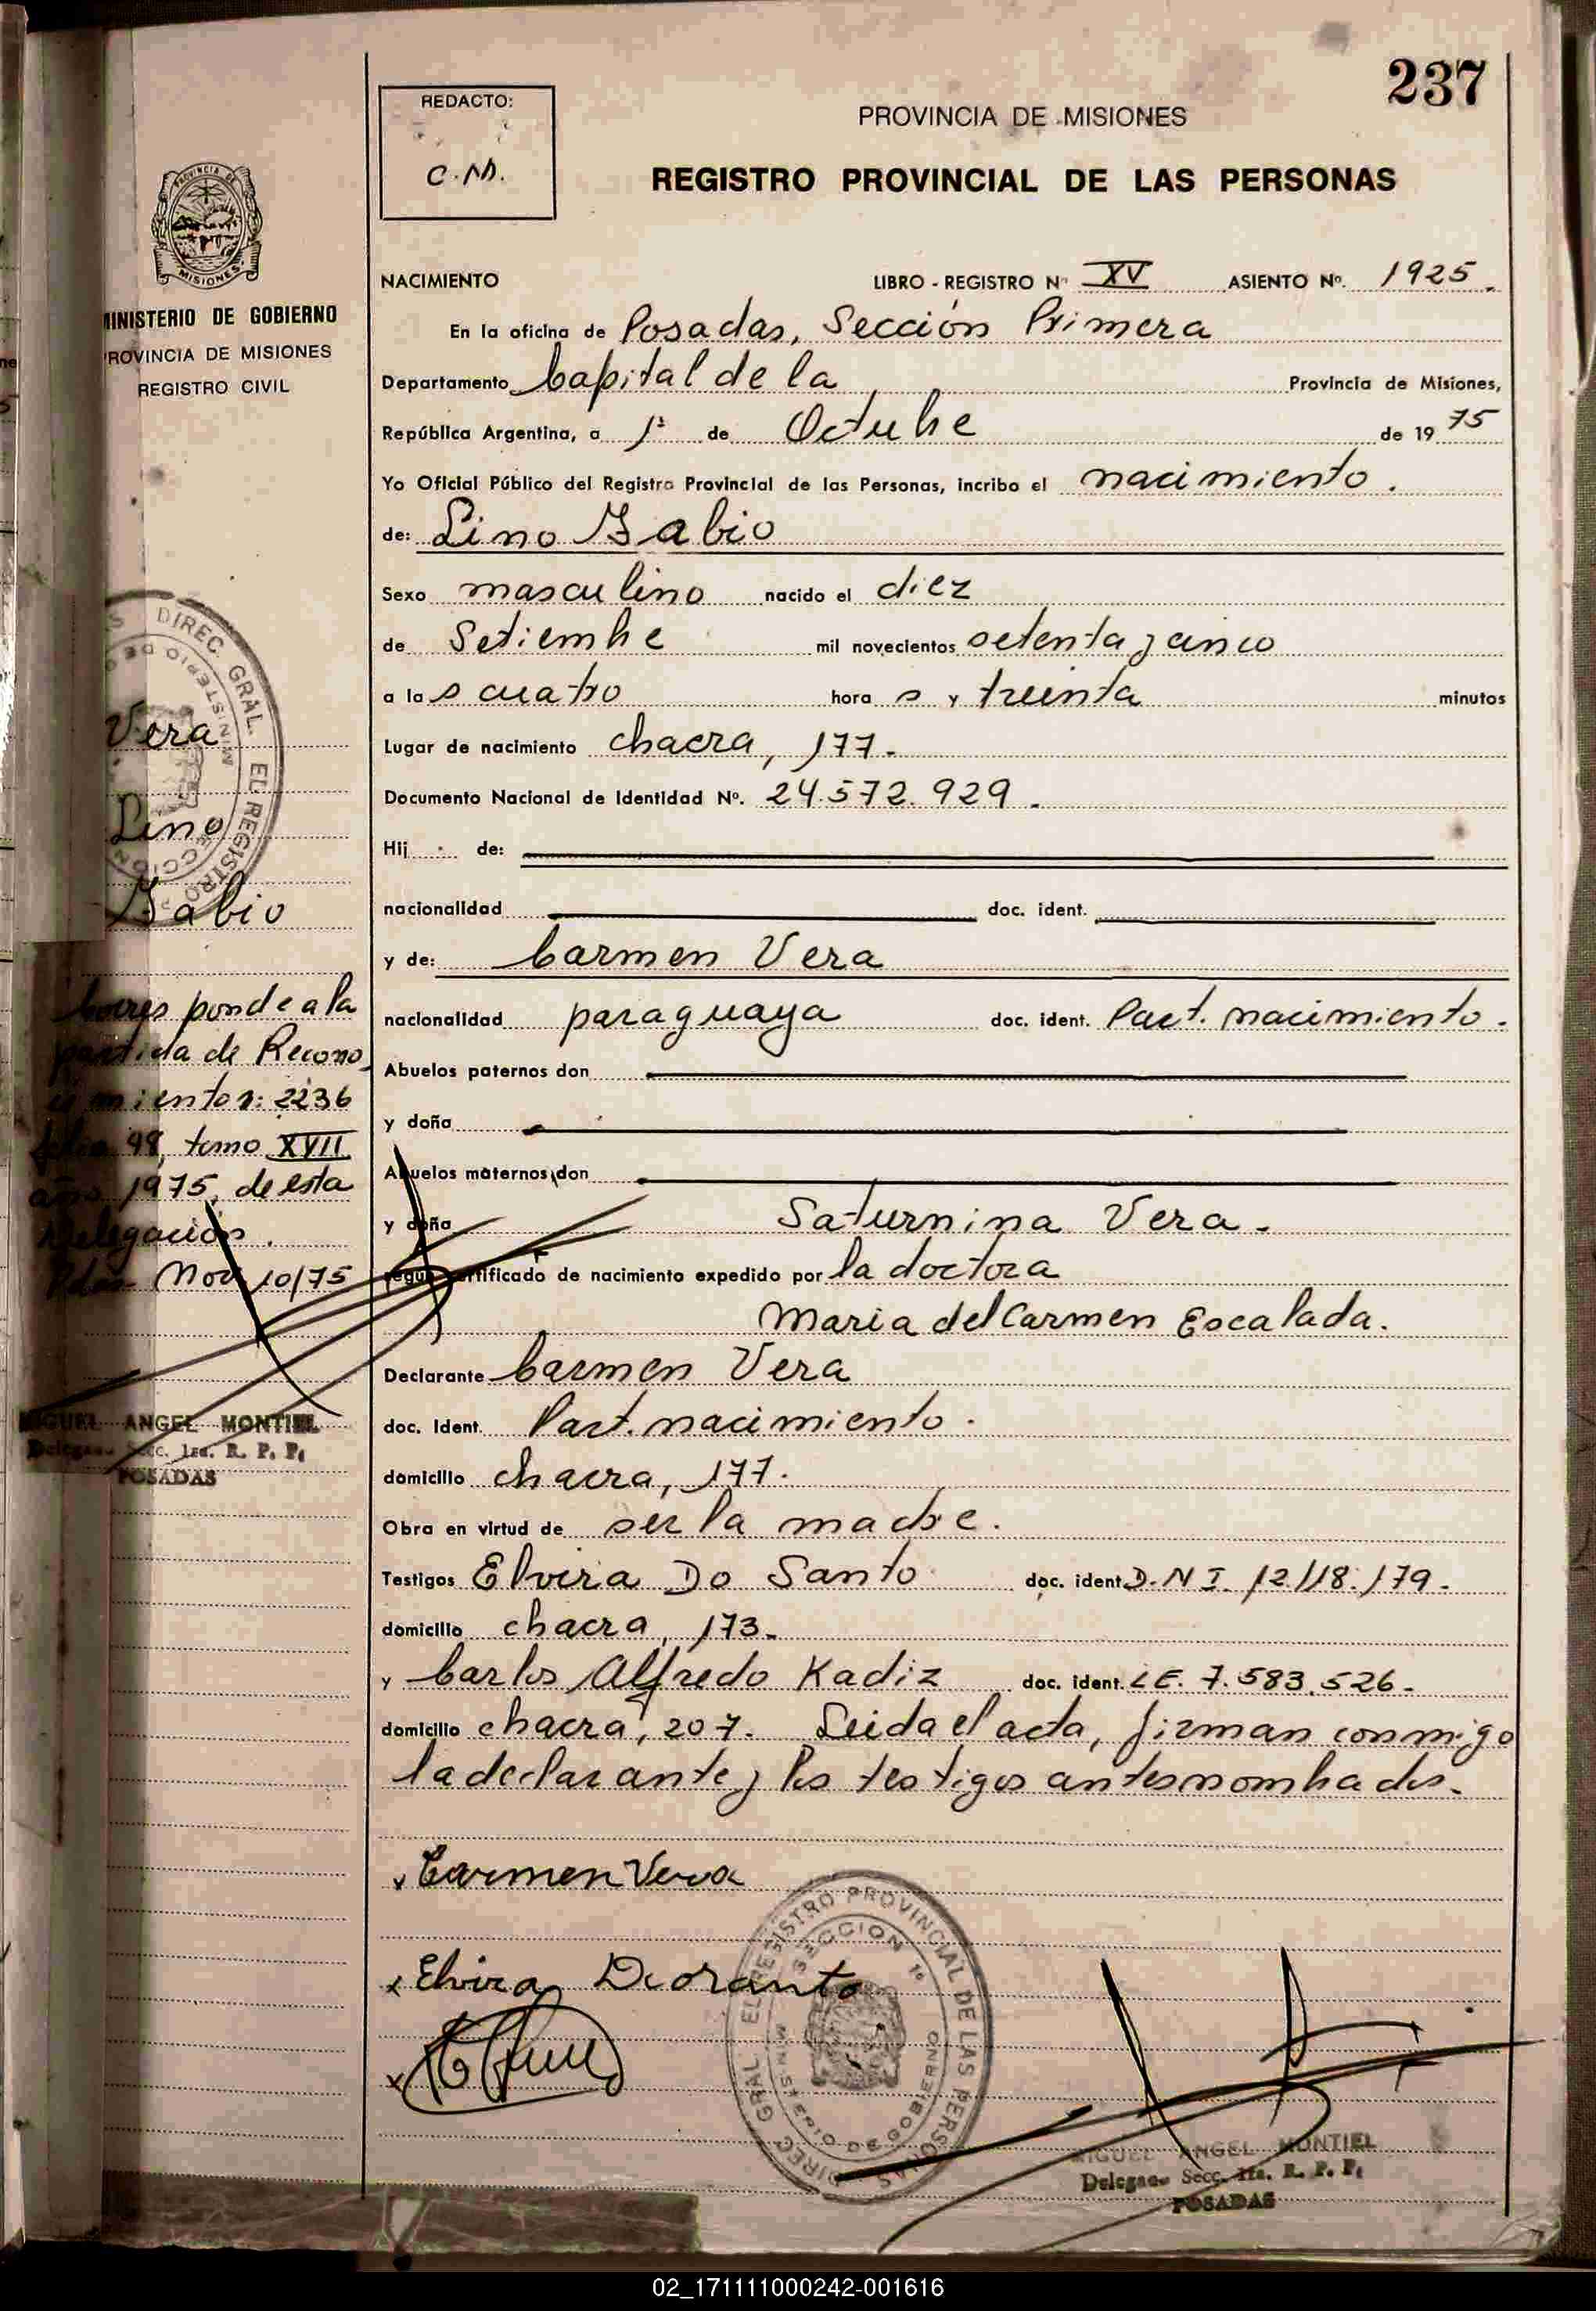 237
REDACTO:
C.M.
PROVINCIA DE MISIONES
REGISTRO PROVINCIAL DE LAS PERSONAS
PROVINCIA DE
MISIONES
MINISTERIO DE GOBIERNO
PROVINCIA DE MISIONES
REGISTRO CIVIL
NACIMIENTO LIBRO - REGISTRO Nº XV ASIENTO Nº. 1925.
En la oficina de Posadas, Sección Primera
Departamento Capital de la Provincia de Misiones,
República Argentina, a 1º de Octubre de 1975
Yo Oficial Público del Registro Provincial de las Personas, incribo el nacimiento.
de: Lino Fabio
Sexo masculino nacido el diez
de Setiembre mil novecientos setenta y cinco
a las cuatro horas y treinta minutos
Lugar de nacimiento chacra, 177.
Documento Nacional de Identidad Nº. 24.572.929.
Hij de:
nacionalidad doc. ident.
y de: Carmen Vera
nacionalidad paraguaya doc. ident. Part. nacimiento.
Abuelos paternos don
y doña
Abuelos maternos don
y doña Saturnina Vera.
según certificado de nacimiento expedido por la doctora
Maria del Carmen Escalada.
Declarante Carmen Vera
doc. Ident. Part. nacimiento.
domicilio chacra, 177.
Obra en virtud de ser la madre.
Testigos Elvira Do Santo doc. ident. D.N I. 12.118.179.
domicilio chacra, 173.
y Carlos Alfredo Kadiz doc. ident. LE. 7.583.526.
domicilio chacra, 207. Leida el acta, firman conmigo
la declarante y los testigos antes nombrados.
Carmen Vera
Elvira Dosanto
DIREC. GRAL. EL REGISTRO PROVINCIAL DE LAS PERSONAS
SECCION 1º
MINISTERIO DE GOBIERNO
MIGUEL ANGEL MONTIEL
Delegado Secc. 1ra. R. P. P.
POSADAS
DIREC. GRAL. EL REGISTRO
MINISTERIO DE
SECCION
Vera
Lino
Fabio
Corresponde a la
partida de Recono
cimiento n: 2236
folio 98, tomo XVII
año 1975, de esta
Delegación.
Pdas. Nov. 10/75
MIGUEL ANGEL MONTIEL
Delegado Secc. 1ra. R. P. P.
POSADAS
02_171111000242-001616